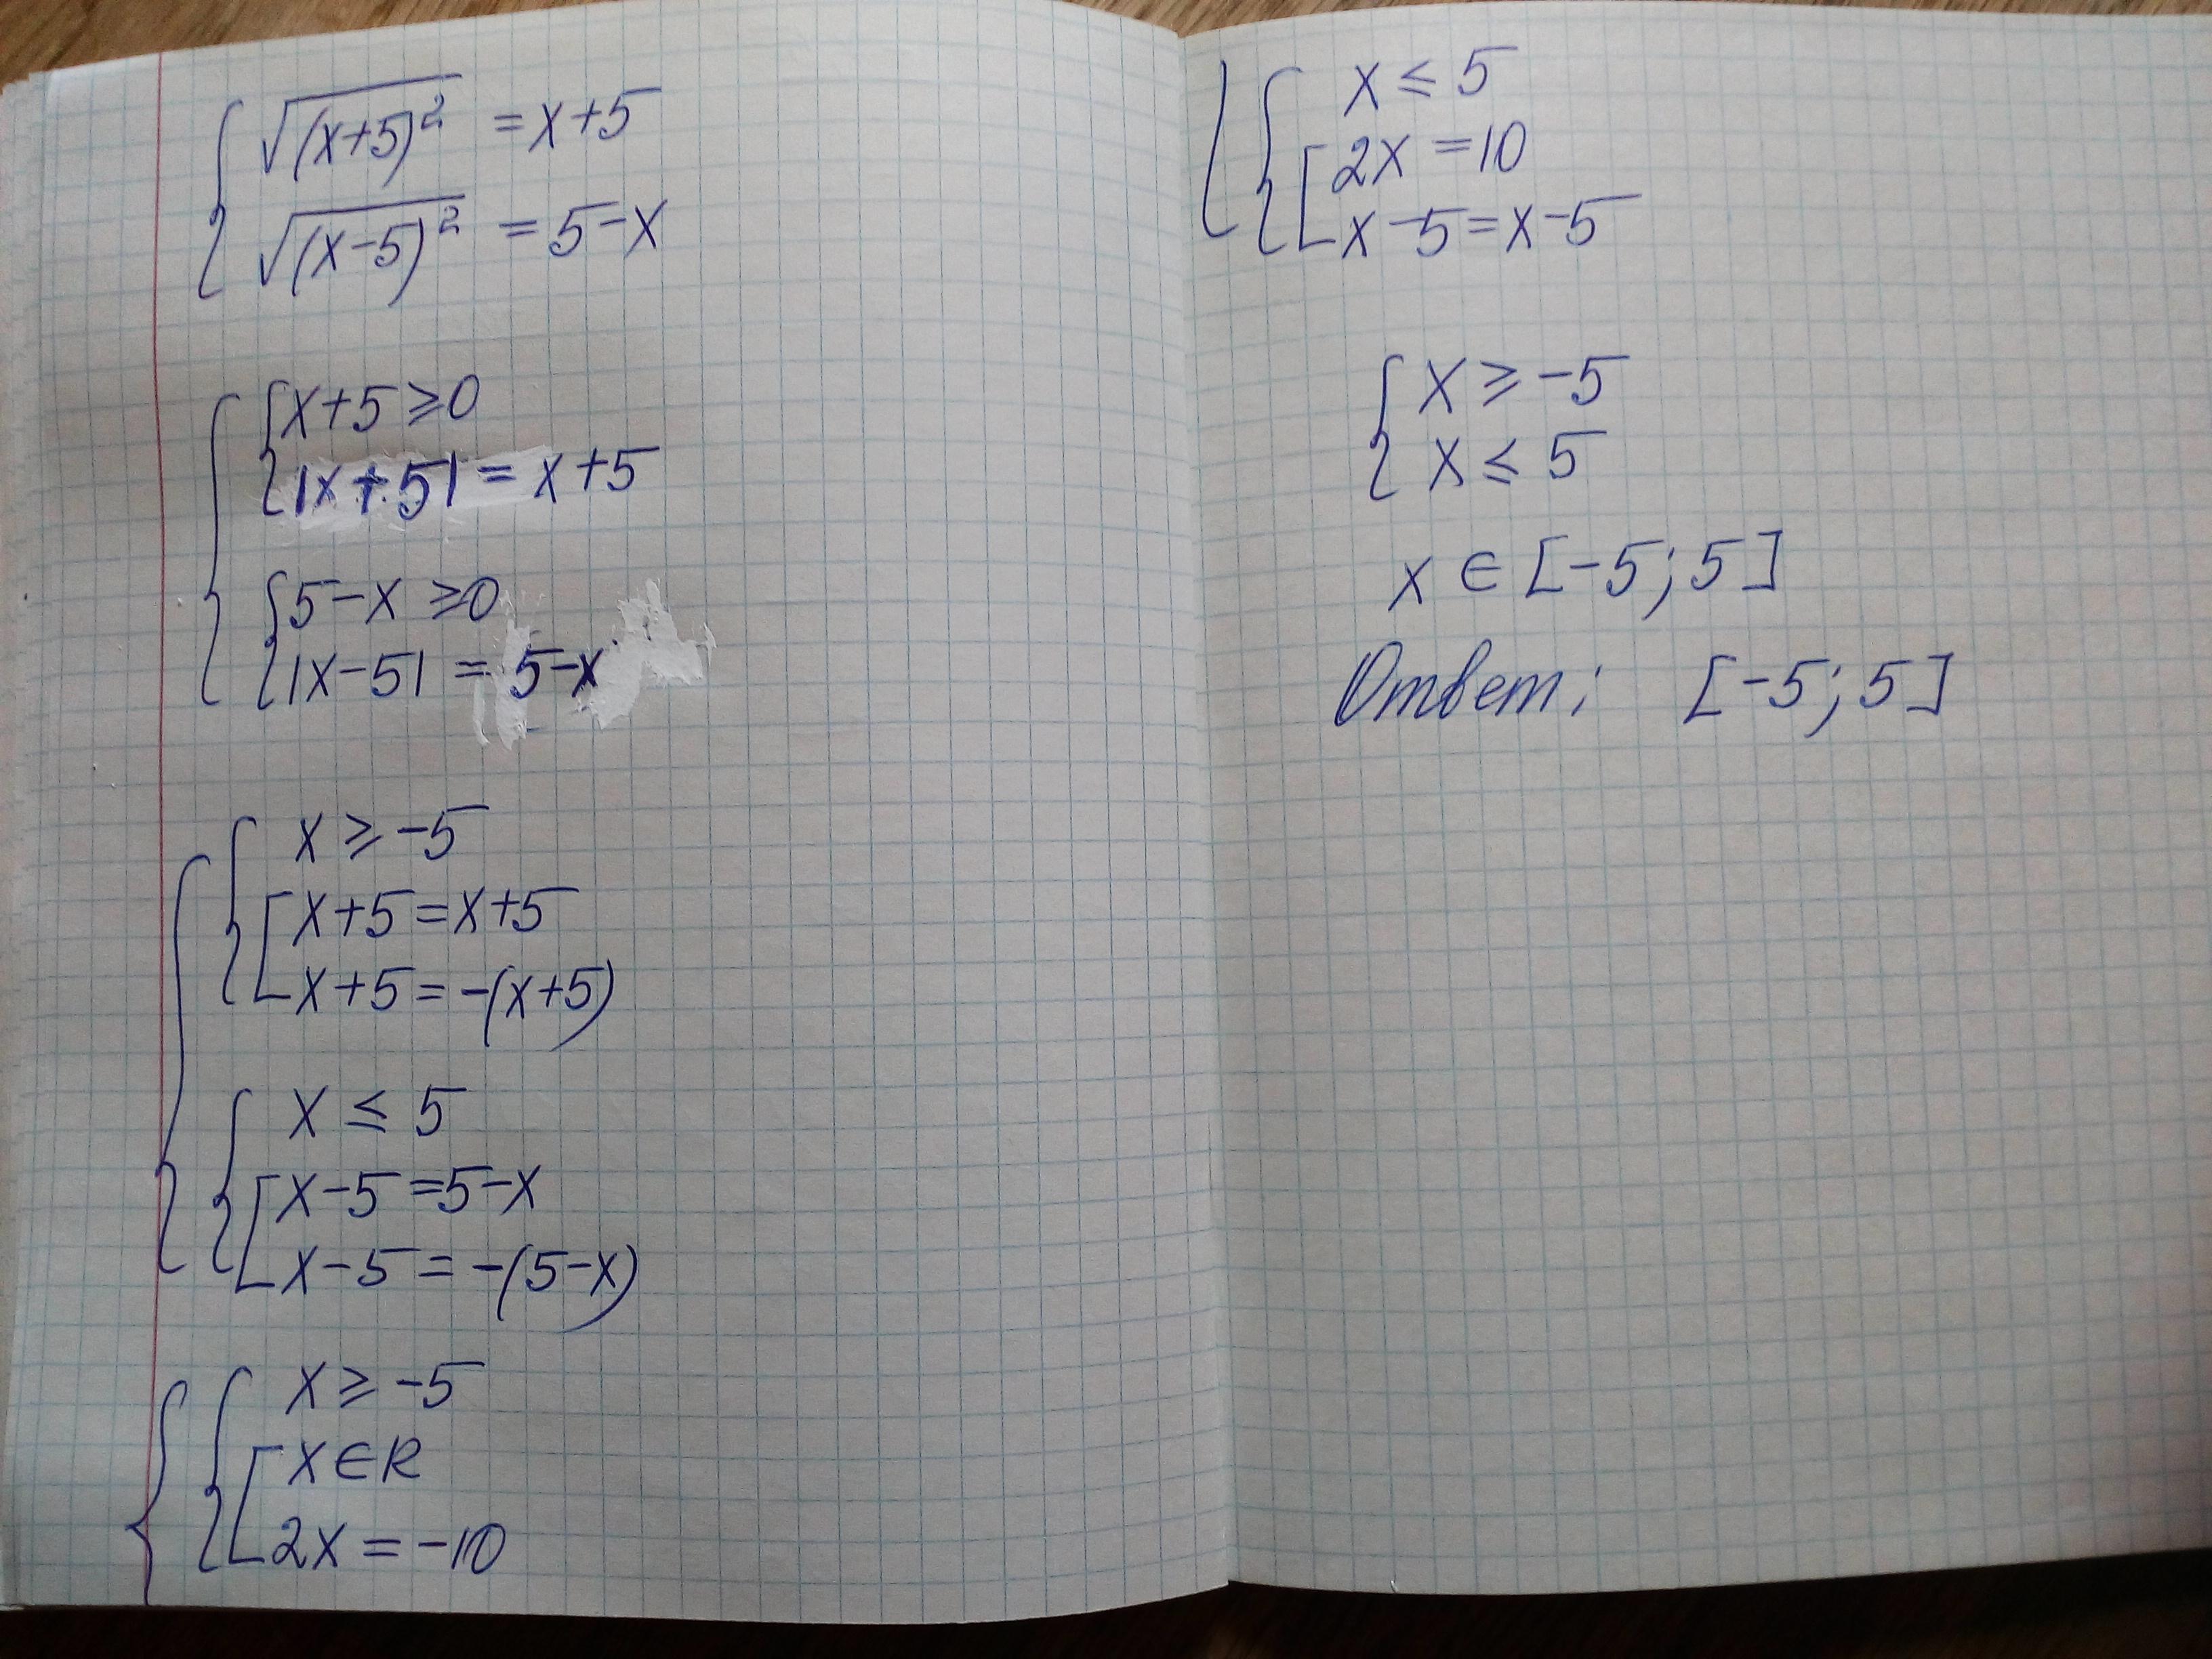 √(x+5)² = x+5
√(x-5)² = 5-x
x+5 ≥ 0
|x+5| = x+5
5-x ≥ 0
|x-5| = 5-x
x ≥ -5
x+5 = x+5
x+5 = -(x+5)
x ≤ 5
x-5 = 5-x
x-5 = -(5-x)
x ≥ -5
x ∈ R
2x = -10
x ≤ 5
2x = 10
x-5 = x-5
x ≥ -5
x ≤ 5
x ∈ [-5; 5]
Ответ: [-5; 5]